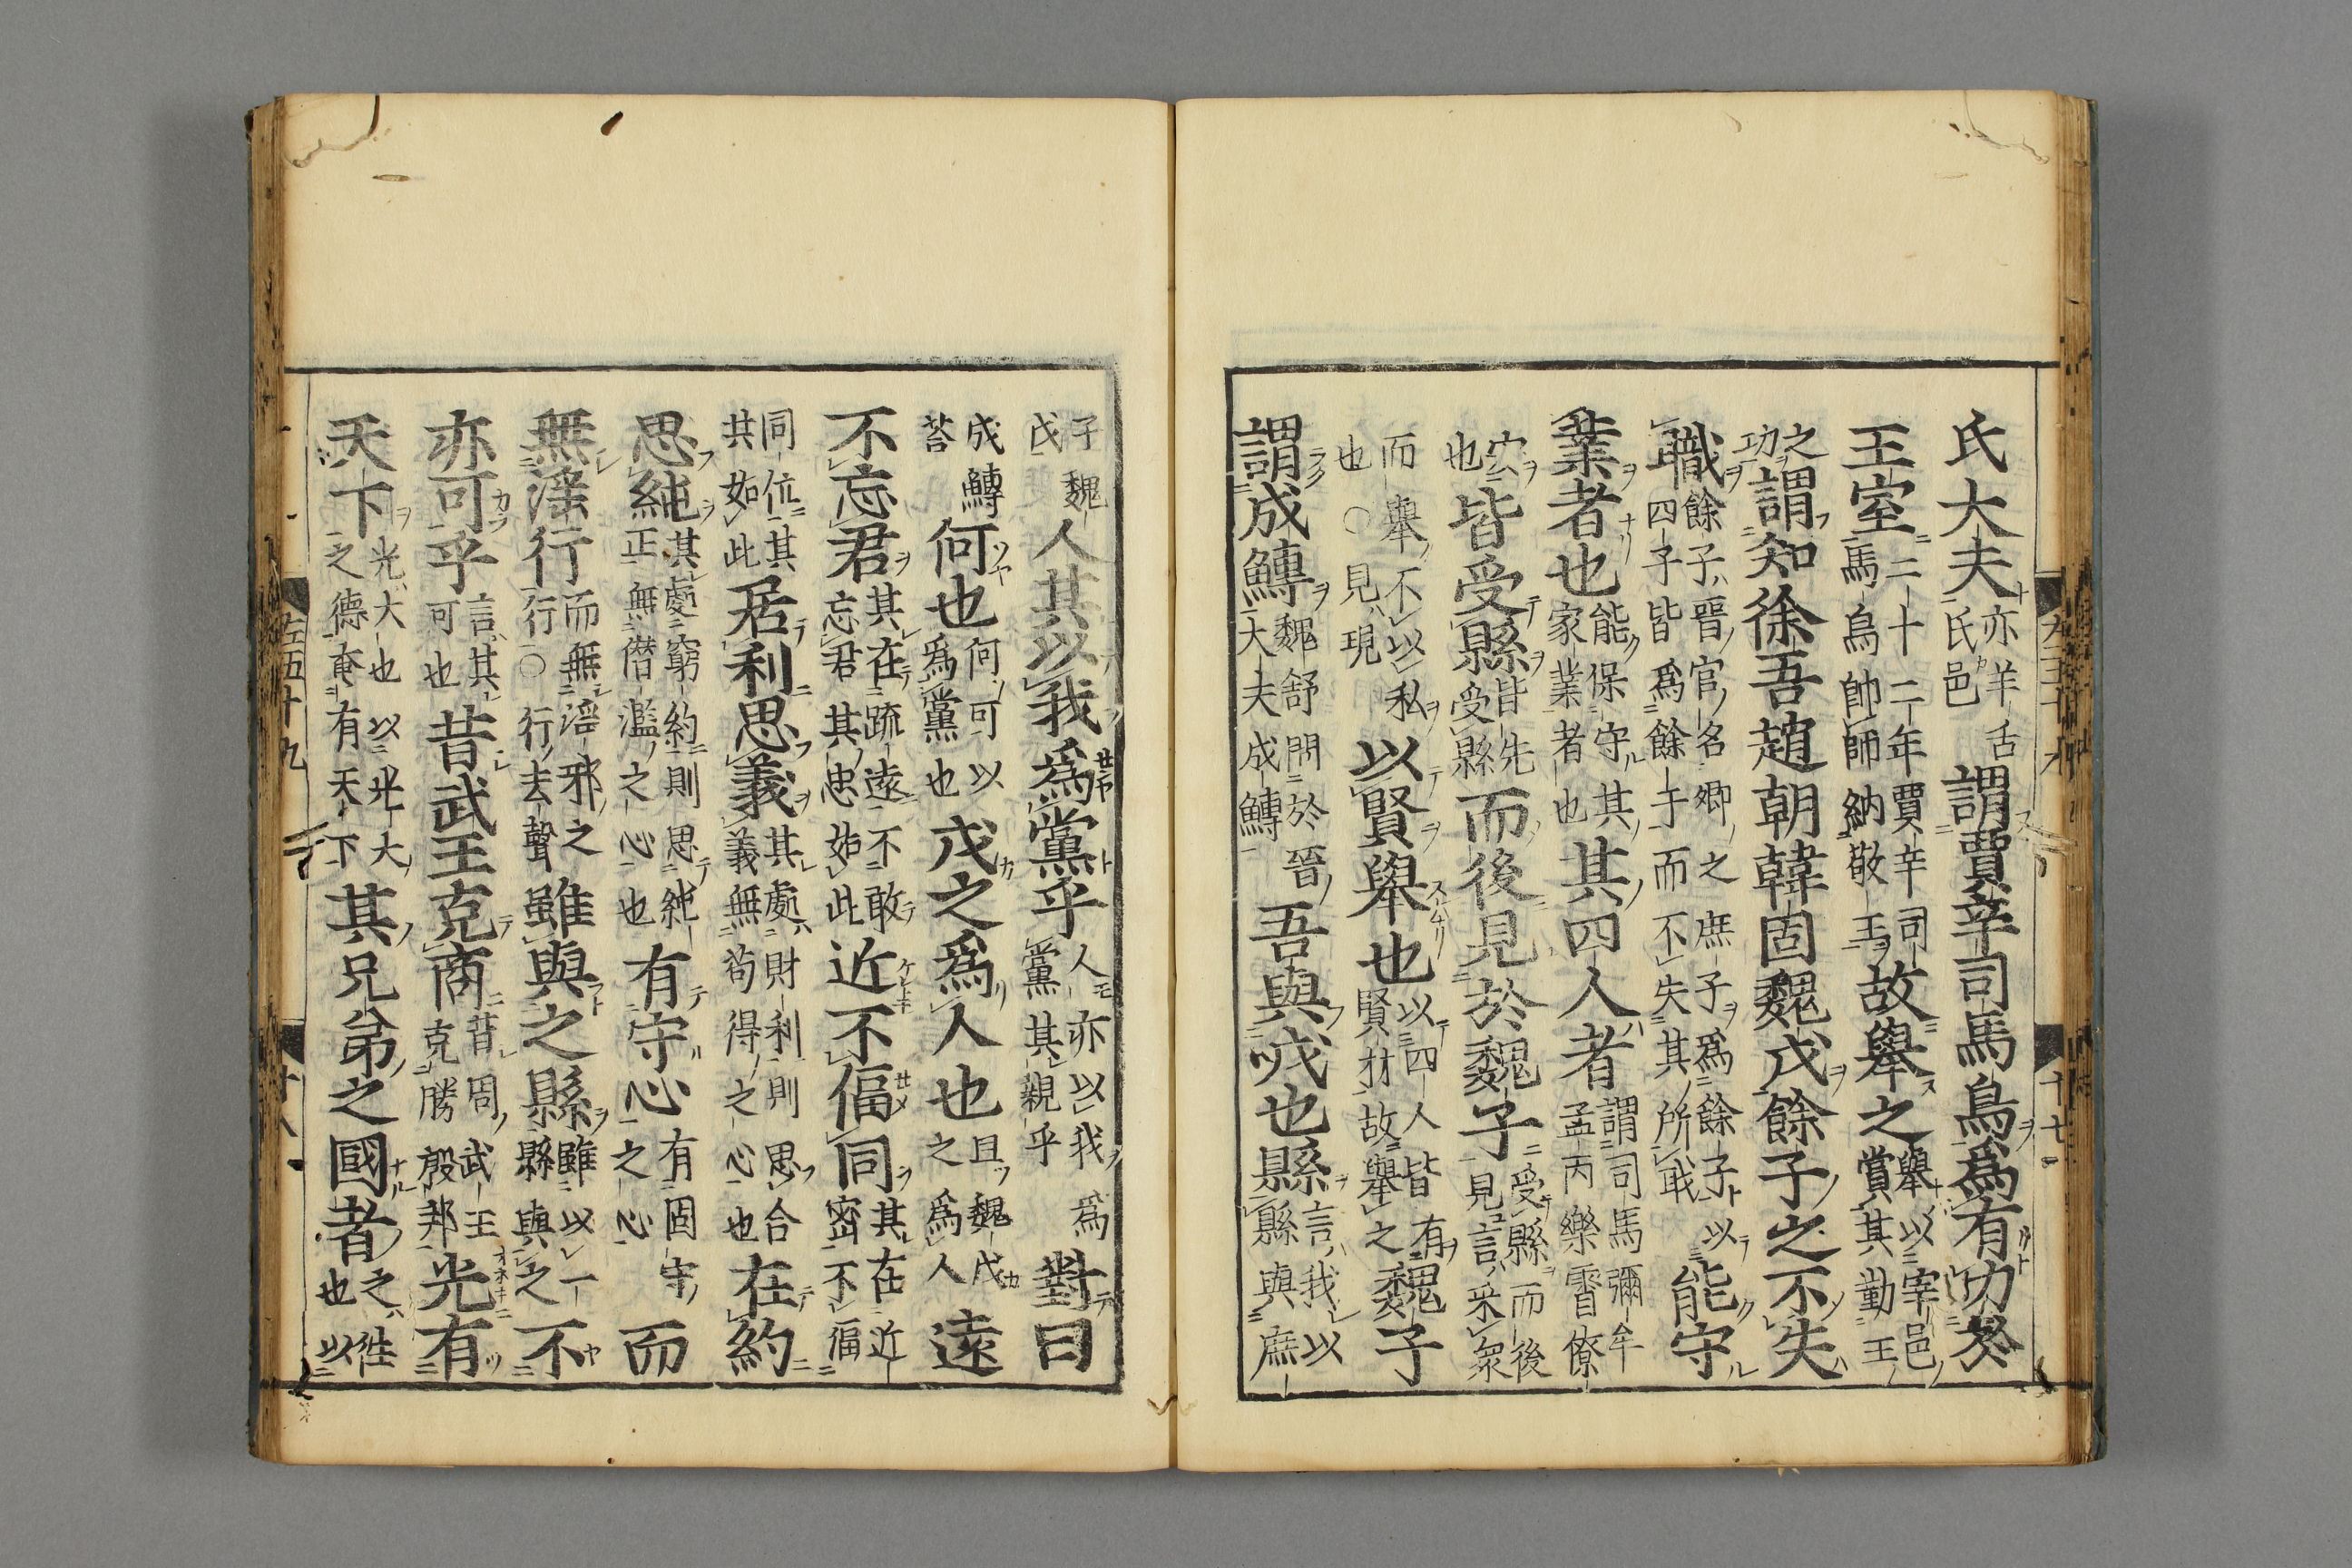 氏大夫亦羊舌氏邑謂賈辛司馬烏爲有功於
王室二十二年賈辛司馬烏帥師納敬王故舉之舉以宰邑賞其勤王
之功謂知徐吾趙朝韓固魏戊餘子之不失
職餘子晉官名卿之庶子爲餘子以四子皆爲餘子而不失其所職能守
業者也能保守其家業者也其四人者謂司馬彌牟孟丙樂霄僚
安也皆受縣皆先受縣而後見於魏子受縣而後見言采衆
而舉不以私也○見現以賢舉也以四人皆有賢材故舉之魏子
謂成鱄魏舒問於晉大夫成鱄吾與戊也縣言我以縣與庶
子魏戊人其以我爲黨乎人亦以我爲黨其親乎對曰
成鱄荅何也何可以爲黨也戊之爲人也且魏戊之爲人遠
不忘君其在疏遠不敢忘君其忠如此近不偪同其在近密不偪
同位其共如此居利思義其處財利則思合義無苟得之心也在約
思純其處窮約則思純正無僭濫之心也有守心有固守之心而
無淫行而無淫邪之行○行去聲雖與之縣雖以一縣與之不
亦可乎言其可也昔武王克商昔周武王克勝殷邦光有
天下光大也以光大之德奄有天下其兄弟之國者之往也以
左五十九
十七
左五十九
十八